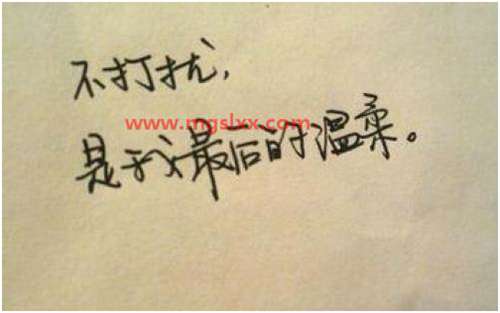 不打扰,
www.mgslxx.com
是我最后的温柔。